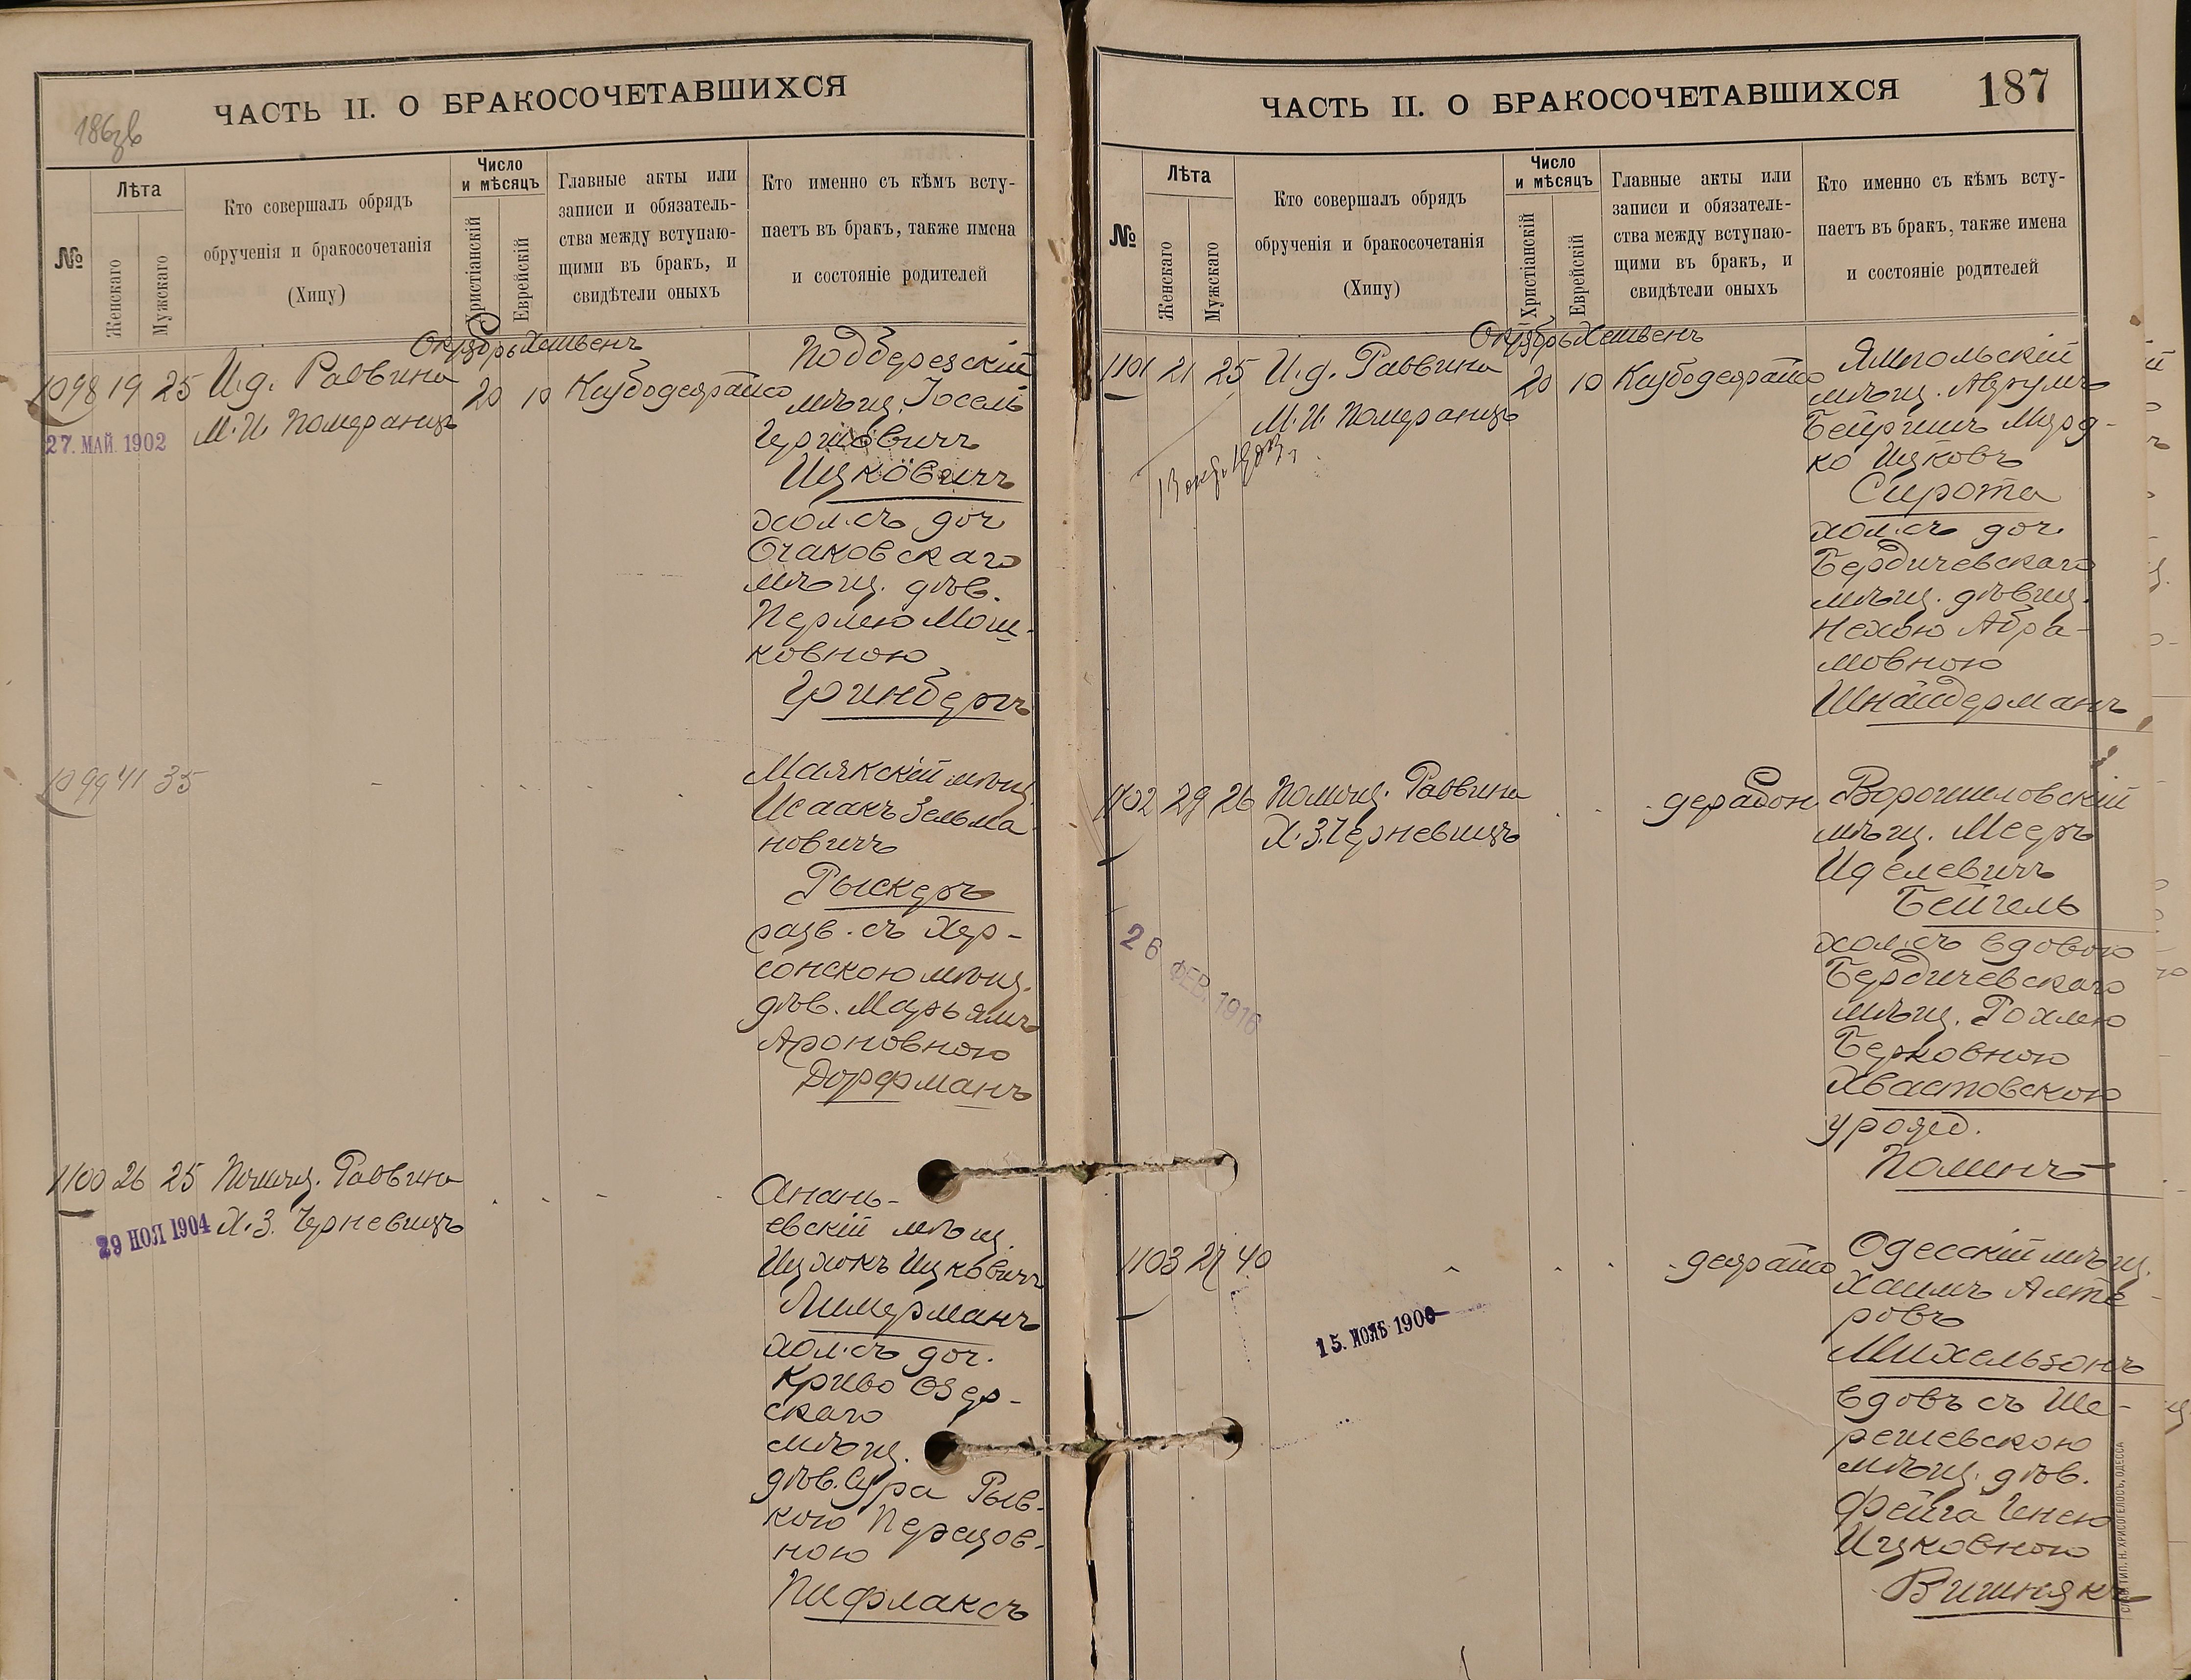 186об
ЧАСТЬ II. О БРАКОСОЧЕТАВШИХСЯ
№
Лѣта
Женскаго
Мужскаго
Кто совершалъ обрядъ
обрученія и бракосочетанія
(Хипу)
Число
и мѣсяцъ
Христіанскій
Еврейскій
Главные акты или
записи и обязатель-
ства между вступаю-
щими въ бракъ, и
свидѣтели оныхъ
Кто именно съ кѣмъ всту-
паетъ въ бракъ, также имена
и состояніе родителей
Октябрь Хешвенъ
1098 19 25 И.д. Раввина 20 10
М.И. Померанцъ
27. МАЙ. 1902
Подберезскій
мѣщ. Іосель
Ицковичъ
хол. съ доч.
Очаковскаго
мѣщ. дѣв.
Перлею Мош-
ковною
Гринбергъ
1099 41 35
Маякскій мѣщ.
Исаакъ Зельма
новичъ
Рыскеръ
разв. съ Хер-
сонскою мѣщ.
дѣв. Марьямъ
Ароновною
Дорфманъ
1100 26 25 Помощ. Раввина
Х.З. Черневицъ
29 НОЯ 1904
Анань-
евскій мѣщ.
Ицхокъ Ицковичъ
Лимерманъ
хол. съ доч.
Криво Озер-
скаго
мѣщ.
дѣв. Сура Рыв-
кою Перецов-
ною
Пифлаксъ
ЧАСТЬ II. О БРАКОСОЧЕТАВШИХСЯ 187
№
Лѣта
Женскаго
Мужскаго
Кто совершалъ обрядъ
обрученія и бракосочетанія
(Хипу)
Число
и мѣсяцъ
Христіанскій
Еврейскій
Главные акты или
записи и обязатель-
ства между вступаю-
щими въ бракъ, и
свидѣтели оныхъ
Кто именно съ кѣмъ всту-
паетъ въ бракъ, также имена
и состояніе родителей
Октябрь Хешвенъ
1101 21 25 И.д. Раввина 20 10
М.И. Померанцъ
Ямпольскій
мѣщ. Аврумъ
Морд-
ко Ицковъ
Сирота
хол. съ доч.
Бердичевскаго
мѣщ. дѣвиц.
Нехою Абра-
мовною
Шнайдерманъ
1102 29 26 Помощ. Раввина
Х.З. Черневицъ
26 ФЕВ. 1916
Ворошиловскій
мѣщ. Мееръ
Иделевичъ
Бейгель
хол. съ вдовою
Бердичевскаго
мѣщ. Рохлею
Берковною
Хвастовскою
урожд.
Полинъ
1103 27 40
15. 1900
Одесскій мѣщ.
Хаимъ Алте
ровъ
Михельзонъ
вдовъ съ Ше-
решевскою
мѣщ. дѣв.
Фейга Генею
Ицковною
Вишнякъ
ТИП. Н. ХРИСОГЕЛОСЪ, ОДЕССА